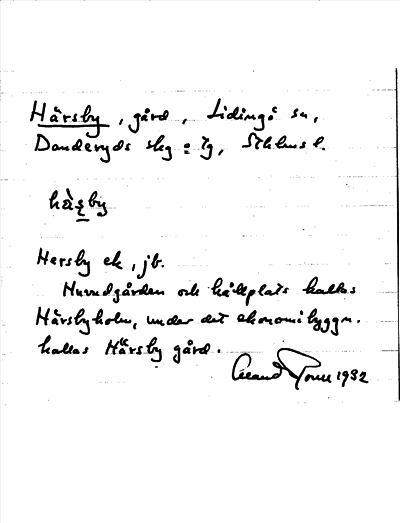 Härsby, gård, Lidingö sn,
Danderyds skg o tg, Sthlms l.
hä̀ʂby
Hersby ek, jb.
Huvudgården och hållplats kallas
Härsbyholm, under det ekonomibyggn.
kallas Härsby gård.
1932